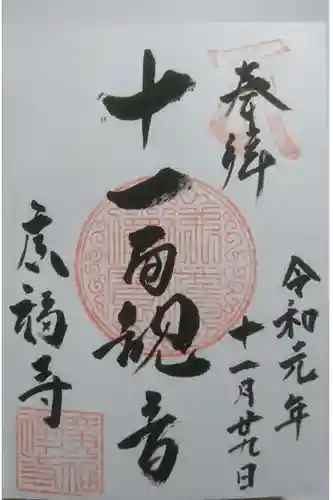 奉拝
令和元年
十一月廿九日
十一面観音
廣福寺